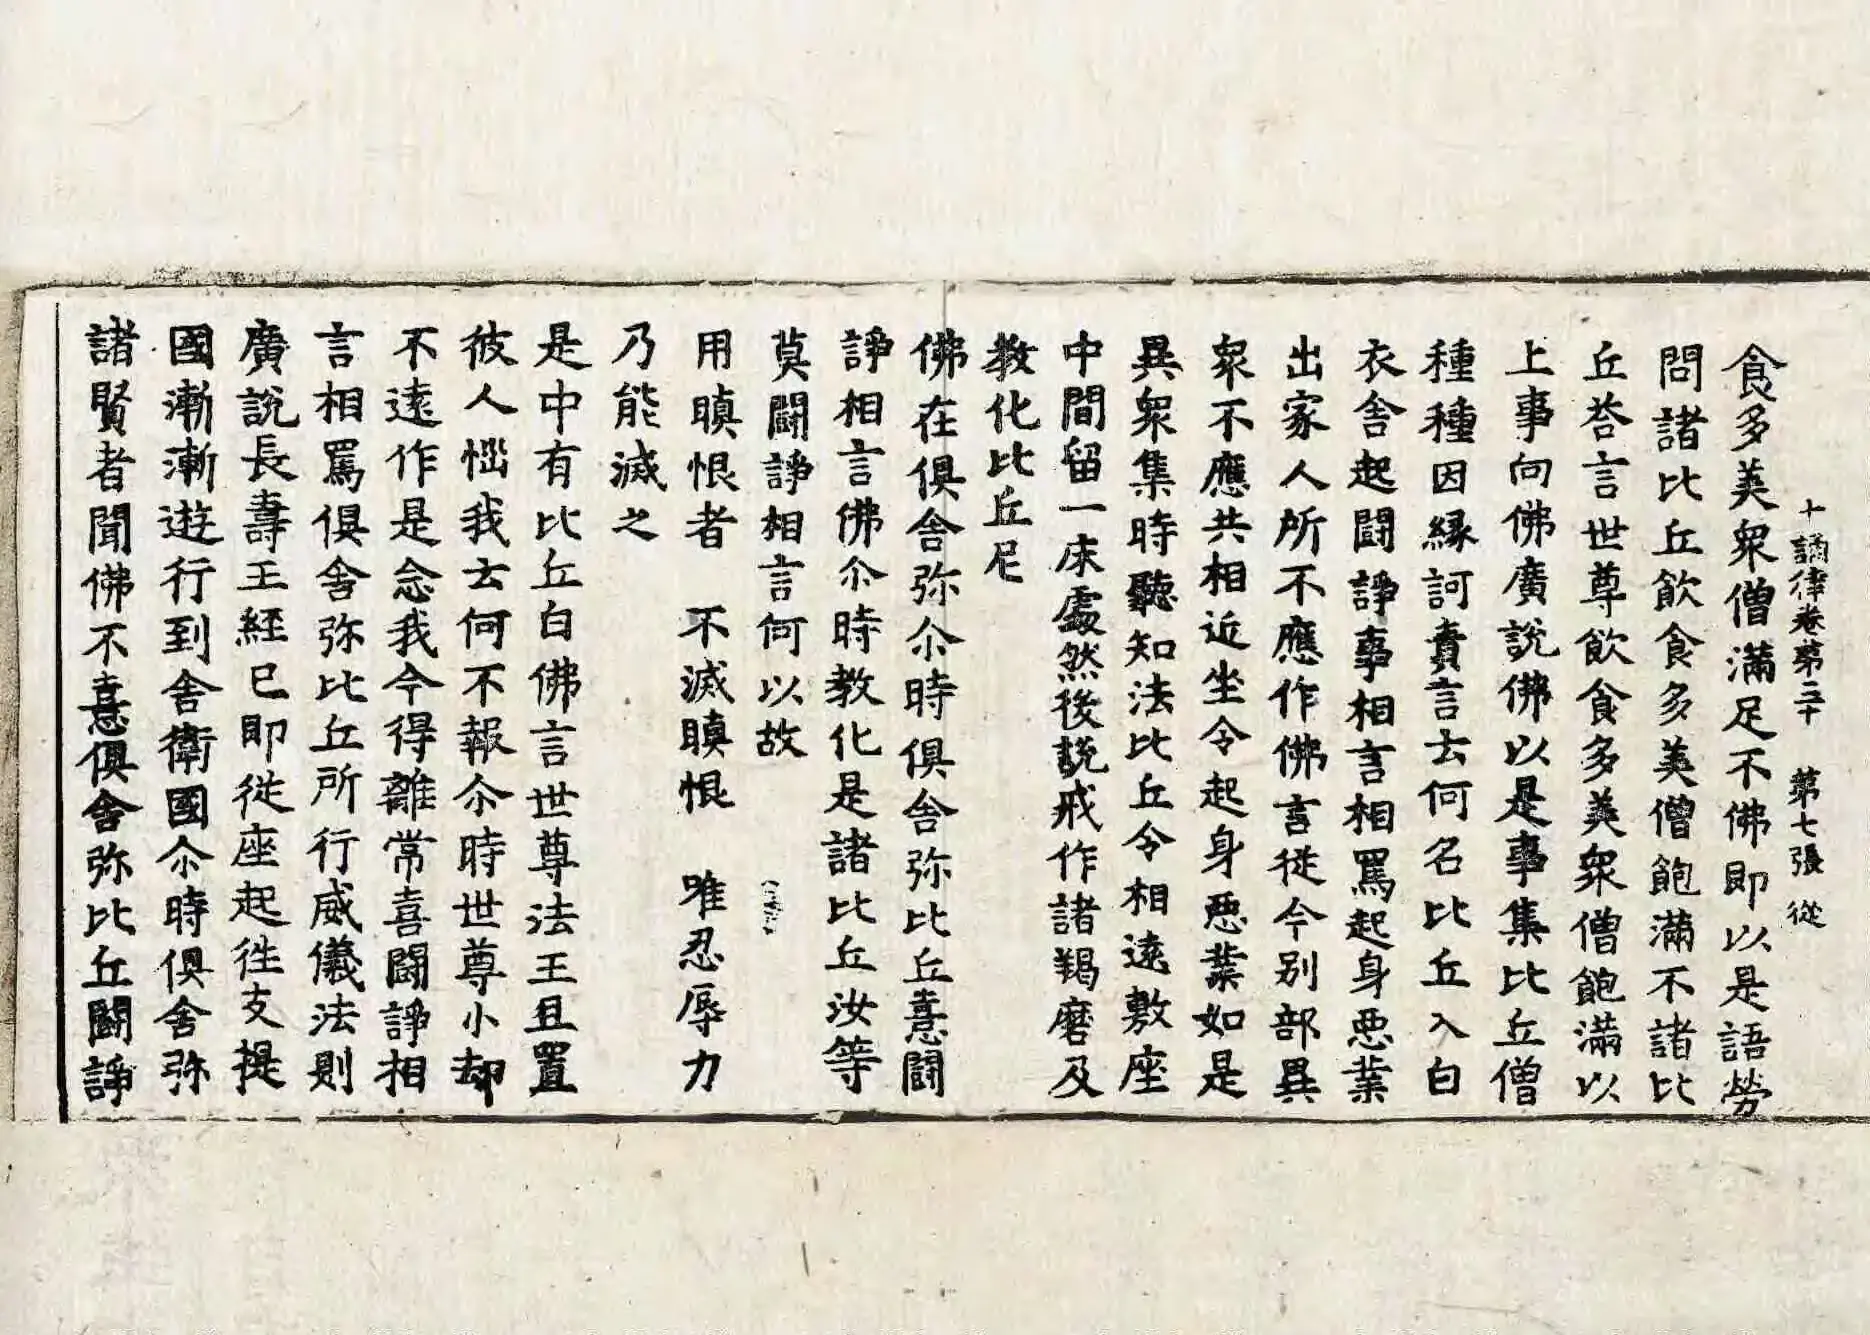 十誦律卷第三十　第七張　從
食多美衆僧滿足不佛即以是語勞
問諸比丘飲食多美僧飽滿不諸比
丘荅言世尊飲食多美衆僧飽滿以
上事向佛廣說佛以是事集比丘僧
種種因緣訶責言云何名比丘入白
衣舍起鬪諍事相言相罵起身惡業
出家人所不應作佛言從今別部異
衆不應共相近坐令起身惡業如是
異衆集時聽知法比丘令相遠敷座
中間留一床處然後說戒作諸羯磨及
教化比丘尼
佛在俱舍弥尒時俱舍弥比丘憙鬪
諍相言佛尒時教化是諸比丘汝等
莫鬪諍相言何以故
用瞋恨者　不滅瞋恨　唯忍辱力
乃能滅之
是中有比丘白佛言世尊法王且置
彼人惱我云何不報尒時世尊小却
不遠作是念我今得離常喜鬪諍相
言相罵俱舍弥比丘所行威儀法則
廣說長壽王經已即從座起往支提
國漸漸遊行到舍衛國尒時俱舍弥
諸賢者聞佛不憙俱舍弥比丘鬪諍